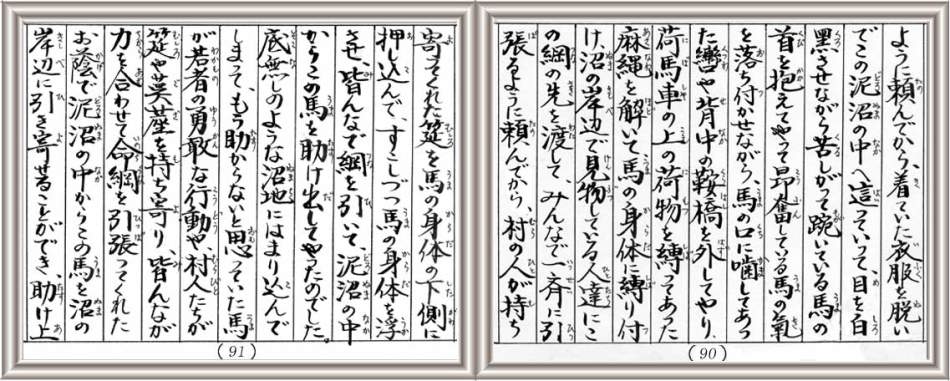 ように頼んでから、着ていた衣服を脱い
でこの泥沼の中へ這っていって、目を白
黒させながら苦しがって跪いている馬の
首を抱えてやって昂奮している馬の氣
を落ち付かせながら、馬の口に噛してあっ
た轡や背中の鞍橋を外してやり、
荷馬車の上の荷物を縛ってあった
麻縄を解いて馬の身体に縛り付
け沼の岸辺で見物している人達にこ
の綱の先を渡して みんなで一斉に引
張るように頼んでから、村の人が持ち
(90)
寄ってくれた筵を馬の身体の下側に
押し込んで、すこしづつ馬の身体を浮
させ、皆んなで綱を引いて、泥沼の中
からこの馬を助け出してやったのでした。
底無しのような沼地にはまり込んで
しまって、もう助からないと思っていた馬
が若者の勇敢な行動や、村人たちが
筵や茣蓙を持ち寄り、皆んなが
力を合わせて命綱を引張ってくれた
お蔭で泥沼の中からこの馬を沼の
岸辺に引き寄せることができ、助け上
(91)